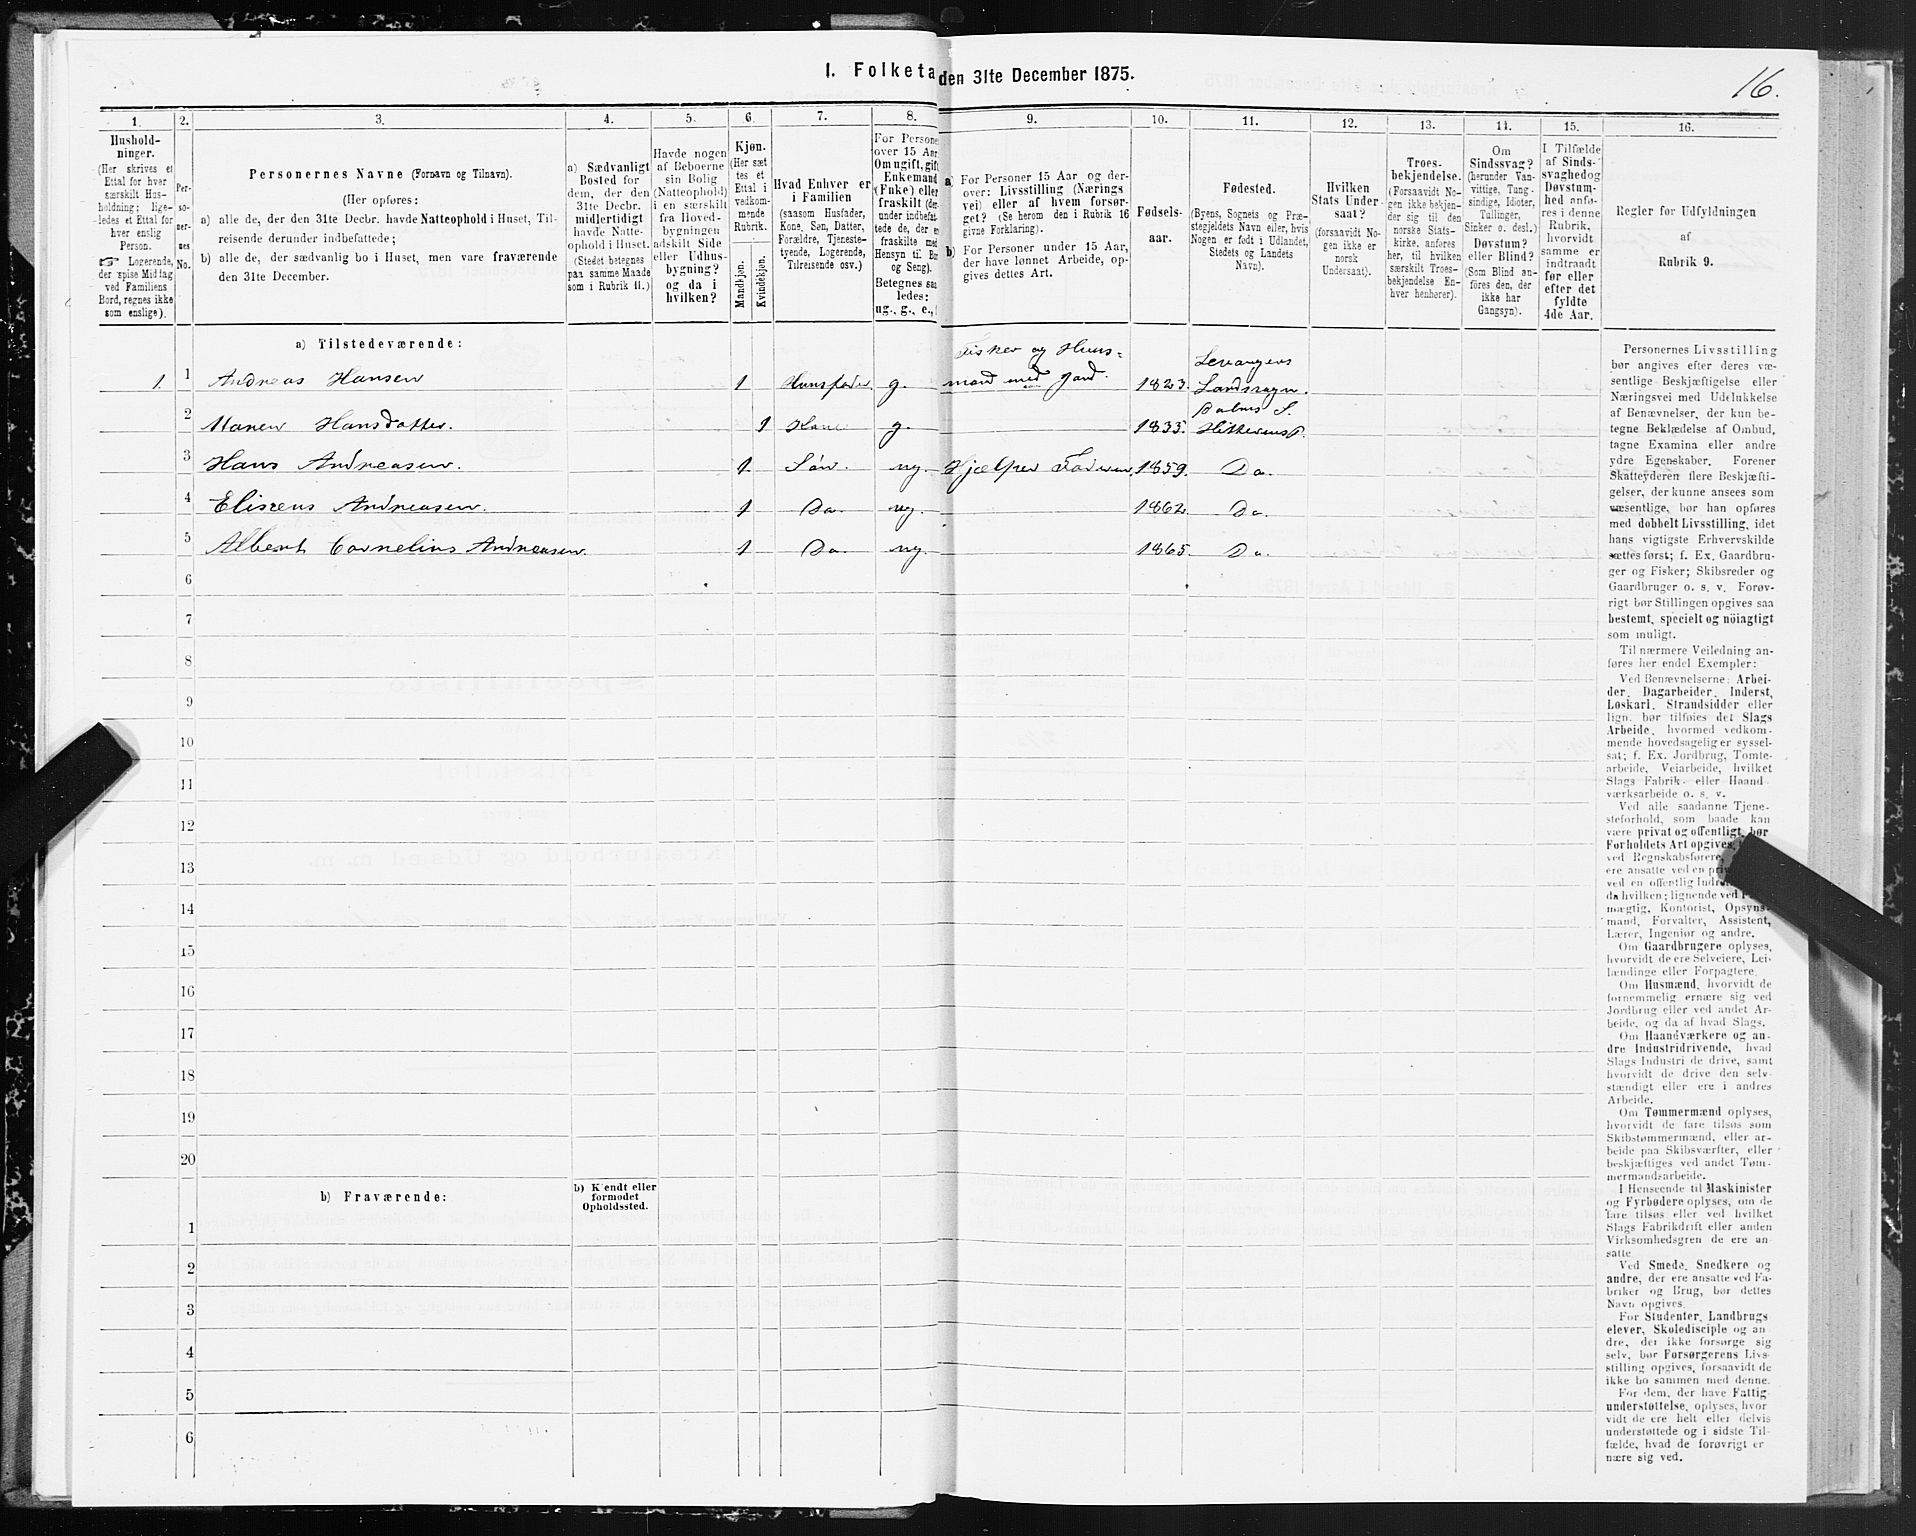 I. Folketa den 31te December 1875.
16.
1.
Hushold-
ninger.
(Her skrives et
Ettal for hver
særskilt Hus-
holdning; lige-
ledes et Ettal for
hver enslig
Person.
☞ Logerende,
der spise Middag
ved Familiens
Bord, regnes ikke
som enslige).
2.
Per-
so-
ner-
nes
No.
3.
Personernes Navne (Fornavn og Tilnavn).
(Her opføres:
a) alle de, der den 31te Decbr. havde Natteophold i Huset, Til-
reisende derunder indbefattede;
b) alle de, der sædvanlig bo i Huset, men vare fraværende
den 31te December.
4.
a) Sædvanligt
Bosted for
dem, der den
31te Decbr.
midlertidigt
havde Natte-
ophold i Huset.
(Stedet betegnes
paa samme Maade
som i Rubrik 11.)
5.
Havde nogen
af Beboerne
sin Bolig
(Natteophold)
i en særskilt
fra Hoved-
bygningen
adskilt Side
eller Udhus-
bygning?
og da i
hvilken?
6.
Kjøn.
(Her sæt
tes et
Ettal i
vedkom-
mende
Rubrik.
Mandkjøn.
Kvindekjøn.
7.
Hvad Enhver er
i Familien
(saasom Husfader,
Kone, Søn, Datter,
Forældre, Tjeneste-
tyende, Logerende,
Tilreisende osv.)
8.
For Persone
over 15 Aar
Om ugift, gift
Enkemand
(Enke) eller
fraskilt (der-
under indbefat-
tede de, der e
fraskilte med
Hensyn til Bo
og Seng).
Betegnes saa
ledes:
ug., g., e.,
9.
a) For Personer 15 Aar og der-
over: Livsstilling (Nærings
vei) eller af hvem forsør-
get? (Se herom den i Rubrik 16
givne Forklaring).
b) For Personer under 15 Aar,
der have lønnet Arbeide, op-
gives dettes Art.
10.
Fødsels-
aar.
11.
Fødested.
(Byens, Sognets og Præ-
stegjeldets Navn eller, hvis
Nogen er født i Udlandet,
Stedets og Landets
Navn).
12.
Hvilken
Stats Under
saat?
(forsaavidt No-
gen ikke er
norsk
Undersaat).
13.
Troes-
bekjendelse.
(Forsaavidt No-
gen ikke bekjen-
der sig til den
norske Stats-
kirke, anføres
her, til hvilken
særskilt Troes-
bekjendelse En-
hver henhører).
14.
Om
Sindssvag?
(herunder Van-
vittige, Tung-
sindige, Idioter,
Tullinger,
Sinker o. desl.)
Døvstum?
eller Blind?
(Som Blind an-
føres den, der
ikke har
Gangsyn).
15.
I Tilfælde
af Sinds-
svaghed og
Døvstum-
hed anfø-
res i denne
Rubrik,
hvorvidt
samme er
indtraadt
før eller
efter det
fyldte
4de Aar.
16.
Regler for Udfyldningen
af
Rubrik 9.
a) Tilstedeværende:
1. 1 Andreas Hansen 1 Huusfader g. Fisker og Huus-
mand med Jord. 1823. Levangers
Landsogn.
2 Maren Hansdatter. 1 Kone g. 1833. Dolms S.
Hitterens P.
3 Hans Andreasen. 1 Søn. ug. Hjælper Faderen 1859. Do.
4 Eliseus Andreasen. 1 Do. ug. 1862. Do.
5 Albert Cornelius Andreasen. 1 Do. ug. 1865. Do.
6
7
8
9
10
11
12
13
14
15
16
17
18
19
20
b) Fraværende:
b) Kjendt eller
formodet
Opholdssted.
1
2
3
4
5
6
Personernes Livsstilling
bør angives efter deres væ-
sentlige Beskjæftigelse eller
Næringsvei med Udelukkelse
af Benævnelser, der kun be-
tegne Beklædelse af Ombud,
tagne Examina eller andre
ydre Egenskaber. Forener
Skatteyderen flere Beskjæfti-
gelser, der kunne ansees som
væsentlige, bør han opføres
med dobbelt Livsstilling, idet
hans vigtigste Erhvervskilde
sættes først; f. Ex. Gaardbru-
ger og Fisker; Skibsreder og
Gaardbruger o. s. v. Forøv-
rigt bør Stillingen opgives saa
bestemt, specielt og nöiagtigt
som muligt.
Til nærmere Veiledning an-
føres her endel Exempler:
Ved Benævnelserne: Arbei-
der, Dagarbeider, Inderst,
Løskarl, Strandsidder eller
lign. bør tilføies det Slags
Arbeide, hvormed vedkom-
mende hovedsagelig er syssel-
sat; f. Ex. Jordbrug, Tomte-
arbeide, Veiarbeide, hvilket
Slags Fabrik- eller Haand-
værksarbeide o. s. v.
Ved alle saadanne Tjene-
steforhold, som baade kan
være privat og offentligt, bør
Forholdets Art opgives,
ved Regnskabsførere,
ere ansatte ved en priv
ved en offentlig Indr
da hvilken; lignende ved F
mægtig, Kontorist, Opsyns-
mand, Forvalter, Assistent,
Lærer, Ingeniør og andre.
Om Gaardbrugere oplyses,
hvorvidt de ere Selveiere, Lei-
lændinge eller Forpagtere.
Om Husmænd, hvorvidt de
fornemmelig ernære sig ved
Jordbrug eller ved andet Ar-
beide, og da af hvad Slags.
Om Haandværkere og an-
dre Industridrivende, hvad
Slags Industri de drive, samt
hvorvidt de drive den selv-
stændigt eller ere i andres
Arbeide.
Om Tømmermænd oplyses,
hvorvidt de fare tilsøs som
Skibstømmermænd, eller ar-
beide paa Skibsværfter, eller
beskjæftiges ved andet Tøm-
mermandsarbeide.
I Henseende til Maskinister
og Fyrbødere oplyses, om de
fare tilsøs eller ved hvilket
Slags Fabrikdrift eller anden
Virksomhedsgren de ere an-
satte.
Ved Smede, Snedkere og
andre, der ere ansatte ved Fa-
briker og Brug, bør dettes
Navn opgives.
For Studenter, Landbrugs
elever, Skoledisciple og an
dre, der ikke forsørge sig
selv, bør Forsørgerens Livs-
stilling opgives, forsaavidt de
ikke bo sammen med denne.
For dem, der have Fattig-
understøttelse, oplyses, hvor
vidt de ere helt eller delvis
understøttede og i sidste Til-
fælde, hvad de forøvrigt er
nære sig ved.